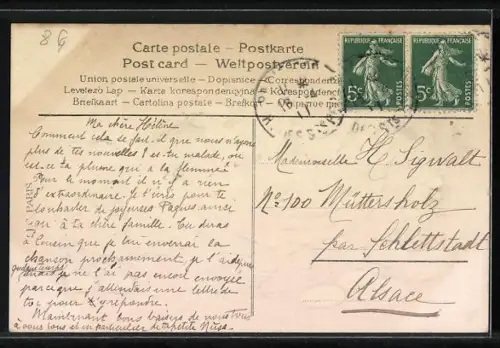 8 G
Carte postale - Postkarte
Post card - Weltpostverein
Union postale universelle - Dopisnice - Correspondenz
Levelező Lap - Karta korespondencyjna - Korespondenc
Briefkaart - Cartolina postale - Brefko
5c
5c
Ma chère Hélène
Comment cela se fait-il que nous n'ayons
plus de tes nouvelles? es-tu malade, ou
est-ce ta plume qui a la flemme?
Pour le moment il n'y a rien
d'extraordinaire. Je t'écris pour te
souhaiter de joyeuses Pâques ainsi
qu'à ta chère famille. Tu diras
à que je lui enverrai la
chanson prochainement, je l'ai
mais je ne l'ai pas encore envoyée
parce que j'attendais une lettre de
toi pour y répondre.
Maintenant bons baisers de nous tous
à vous tous et en particulier de ta petite
Mademoiselle H. Sigwalt
No 100 Müttersholz
par Schlettstadt
Alsace